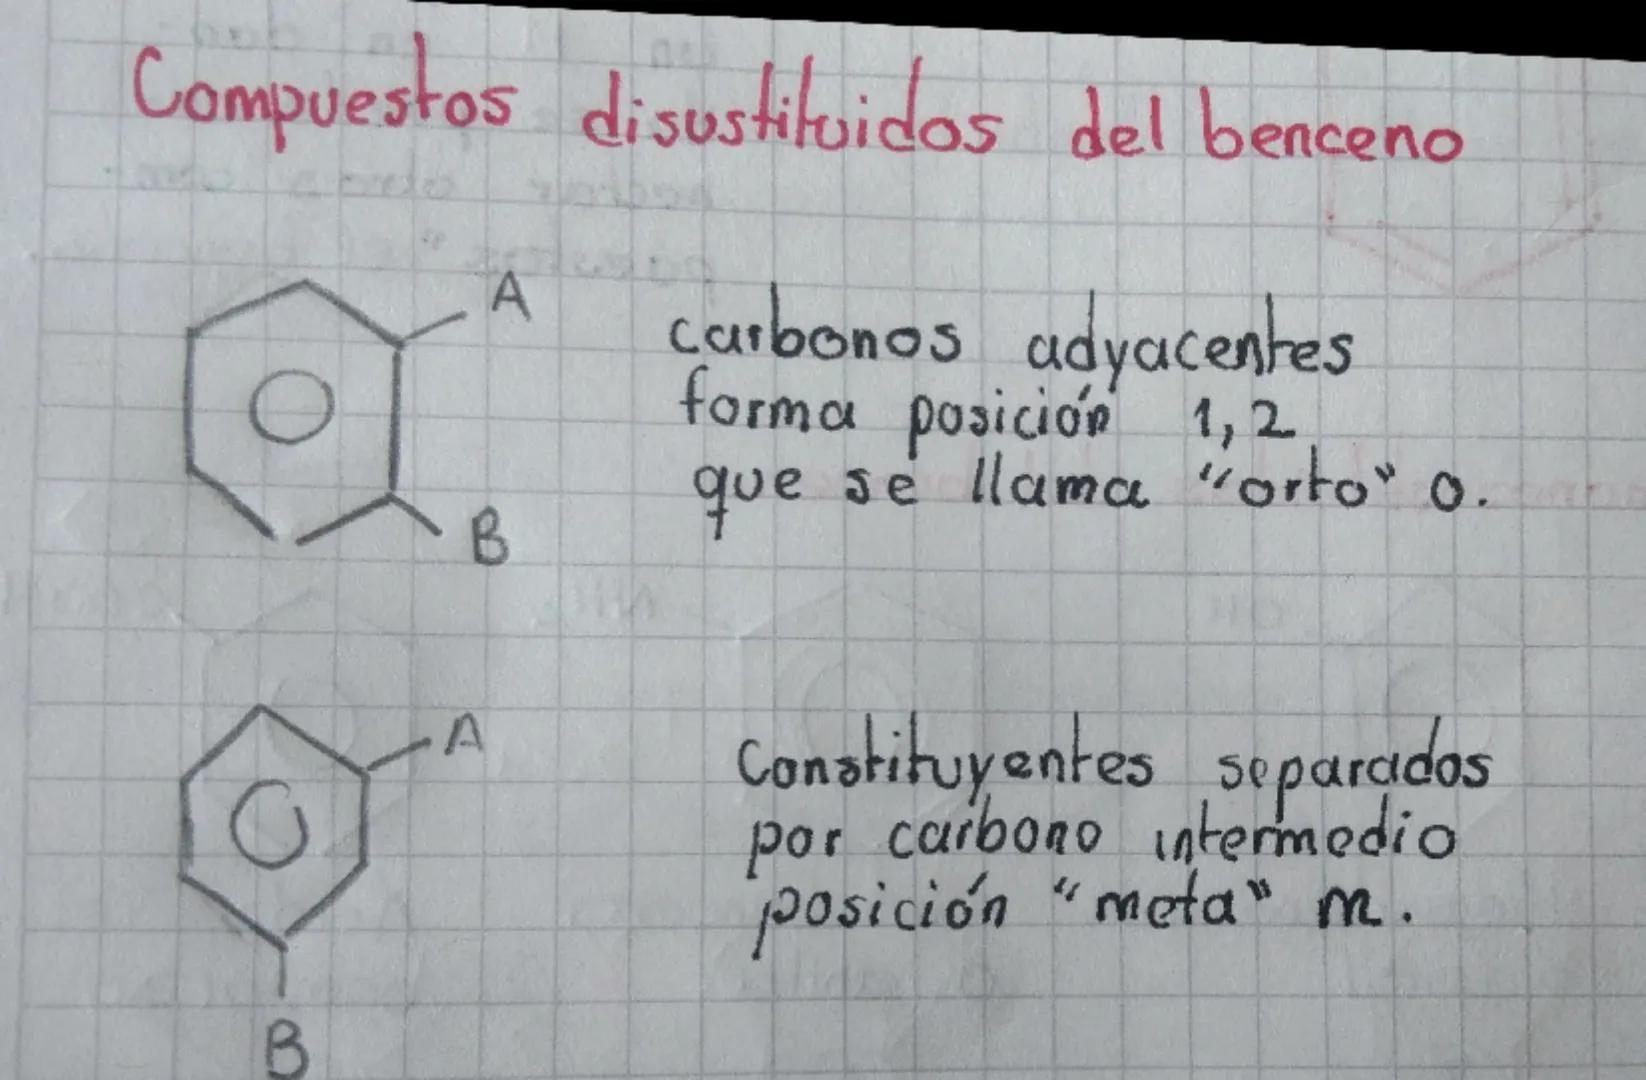 Compuestos disustituidos del benceno
A
carbonos adyacentes
forma posición 1,2
que se llama "orto" o.
B
A
Constituyentes separados
por carbono intermedio
posición "meta" m.
B